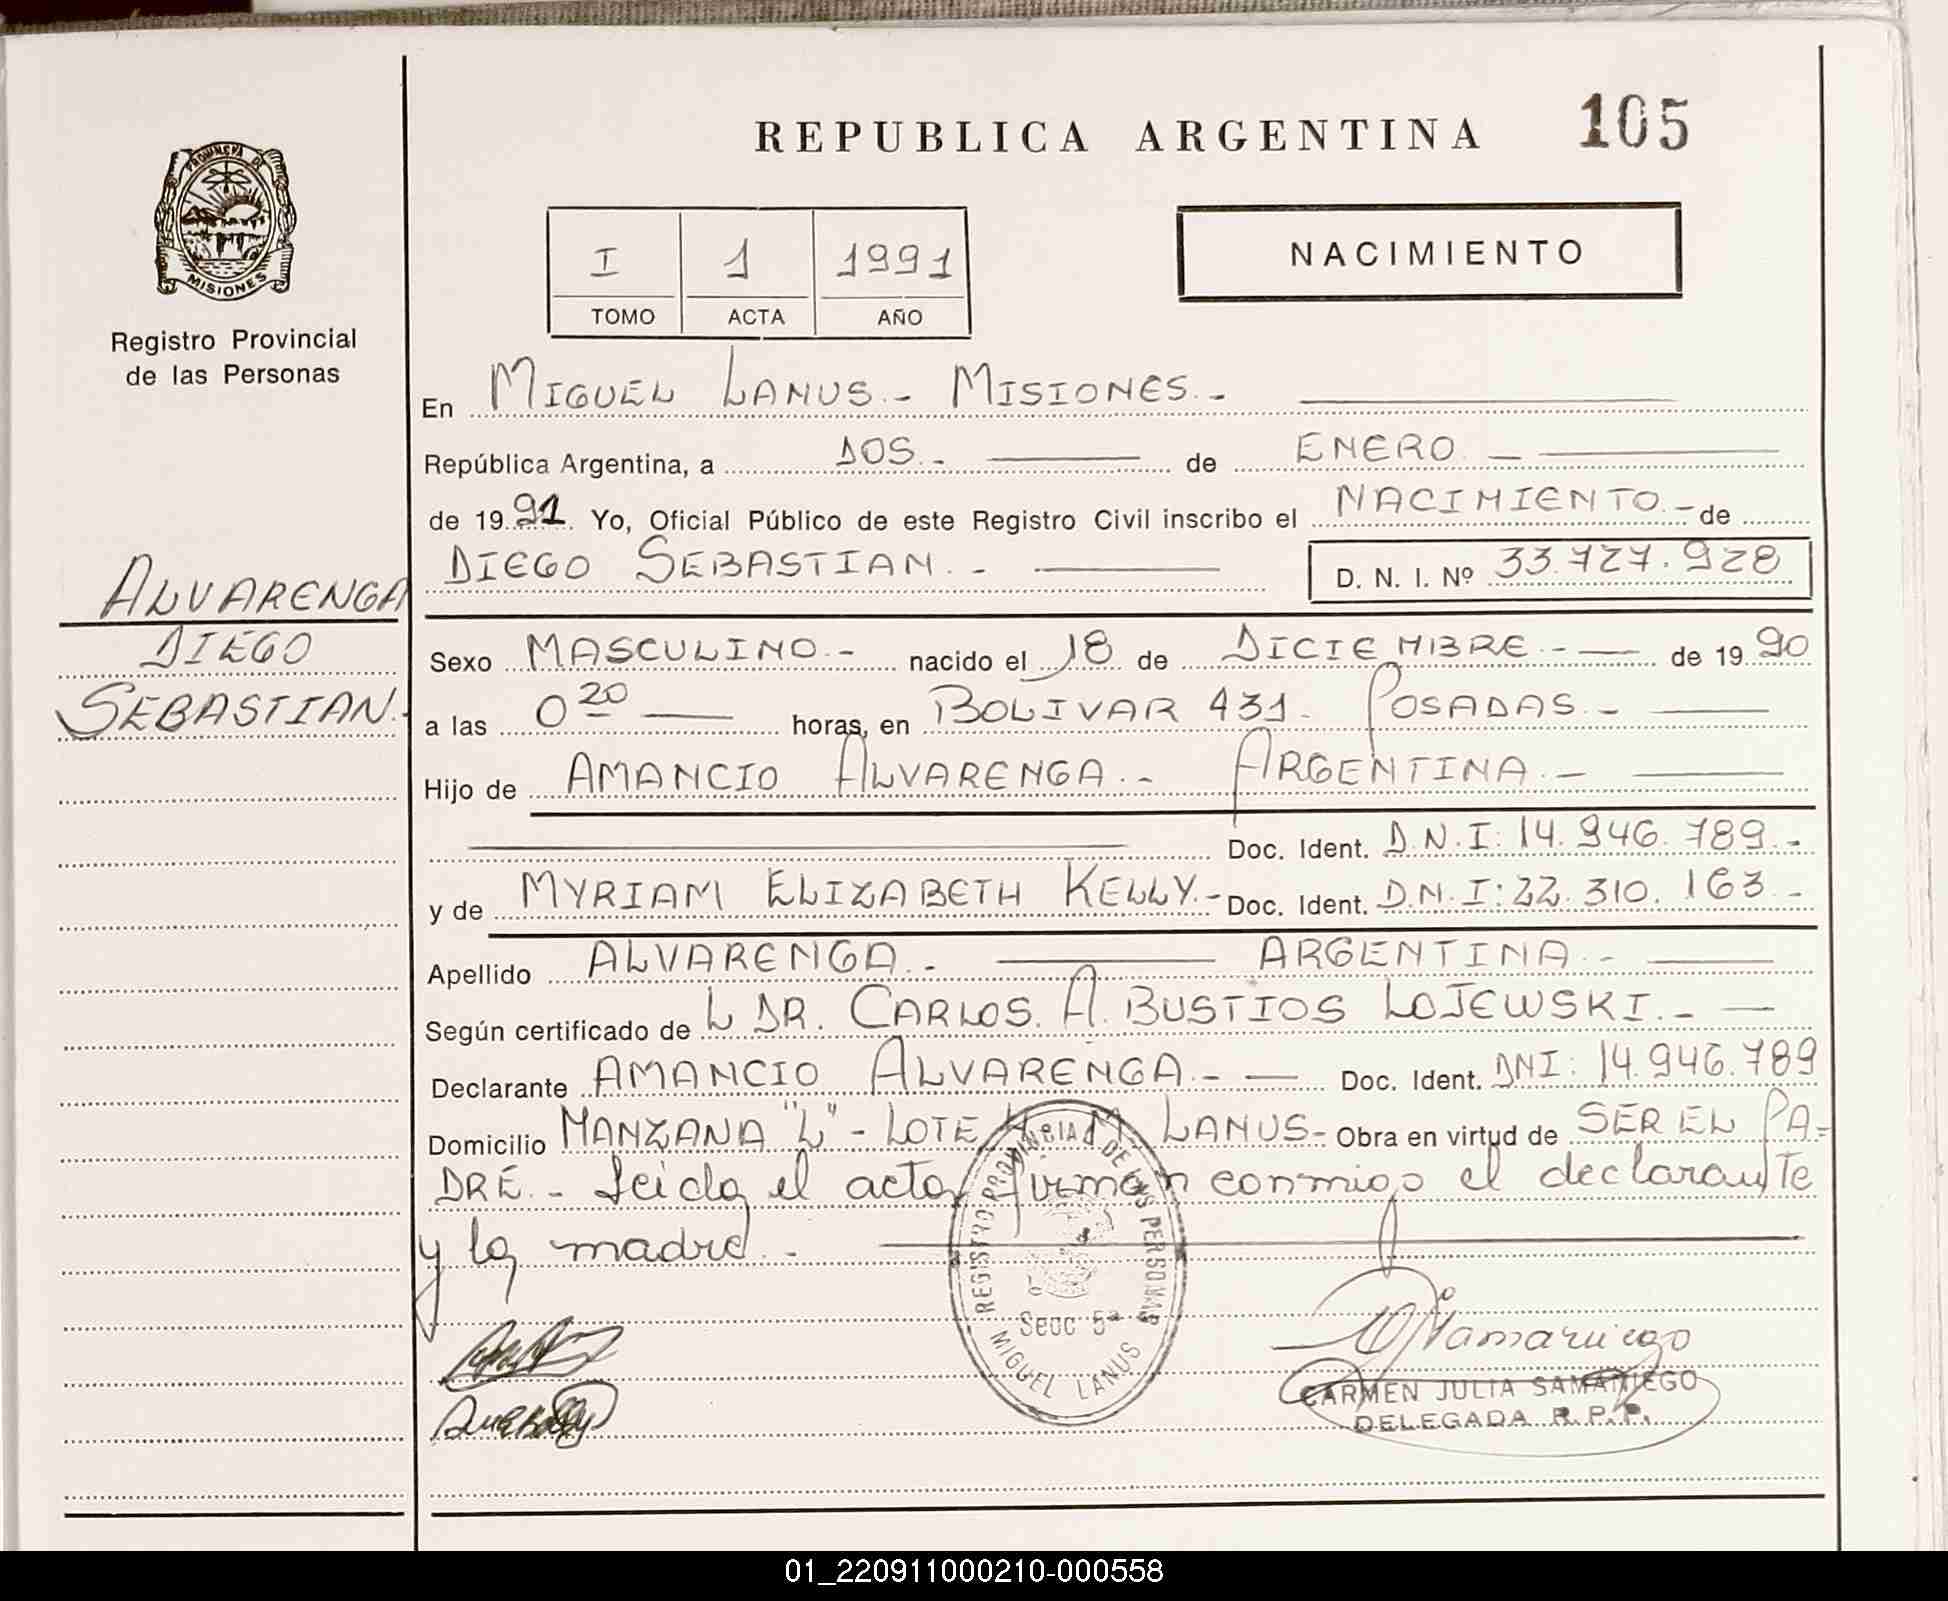 REPUBLICA ARGENTINA 105
PROVINCIA DE MISIONES
Registro Provincial
de las Personas
I 1 1991
TOMO ACTA AÑO
NACIMIENTO
En MIGUEL LANUS.- MISIONES.-
República Argentina, a DOS.- de ENERO
de 1991. Yo, Oficial Público de este Registro Civil inscribo el NACIMIENTO.- de
DIEGO SEBASTIAN.- D. N. I. Nº 33.727.928
ALVARENGA
DIEGO
SEBASTIAN.
Sexo MASCULINO.- nacido el 18 de DICIEMBRE.- de 1990
a las 0 20 horas, en BOLIVAR 431. POSADAS.-
Hijo de AMANCIO ALVARENGA.- ARGENTINA.-
Doc. Ident. D.N.I: 14.946.789.-
y de MYRIAM ELIZABETH KELLY.- Doc. Ident. D.N.I: 22.310.163.-
Apellido ALVARENGA.- ARGENTINA.-
Según certificado de L DR. CARLOS. A. BUSTIOS LOJEWSKI.-
Declarante AMANCIO ALVARENGA.- Doc. Ident. DNI: 14.946.789
Domicilio MANZANA "L" - LOTE M. LANUS- Obra en virtud de SER EL PA-
DRE.- Leida el acta, firman conmigo el declarante
y la madre.-
REGISTRO PROVINCIAL DE LAS PERSONAS
Secc 5ª
MIGUEL LANUS
CARMEN JULIA SAMANIEGO
DELEGADA R.P.P.
01_220911000210-000558